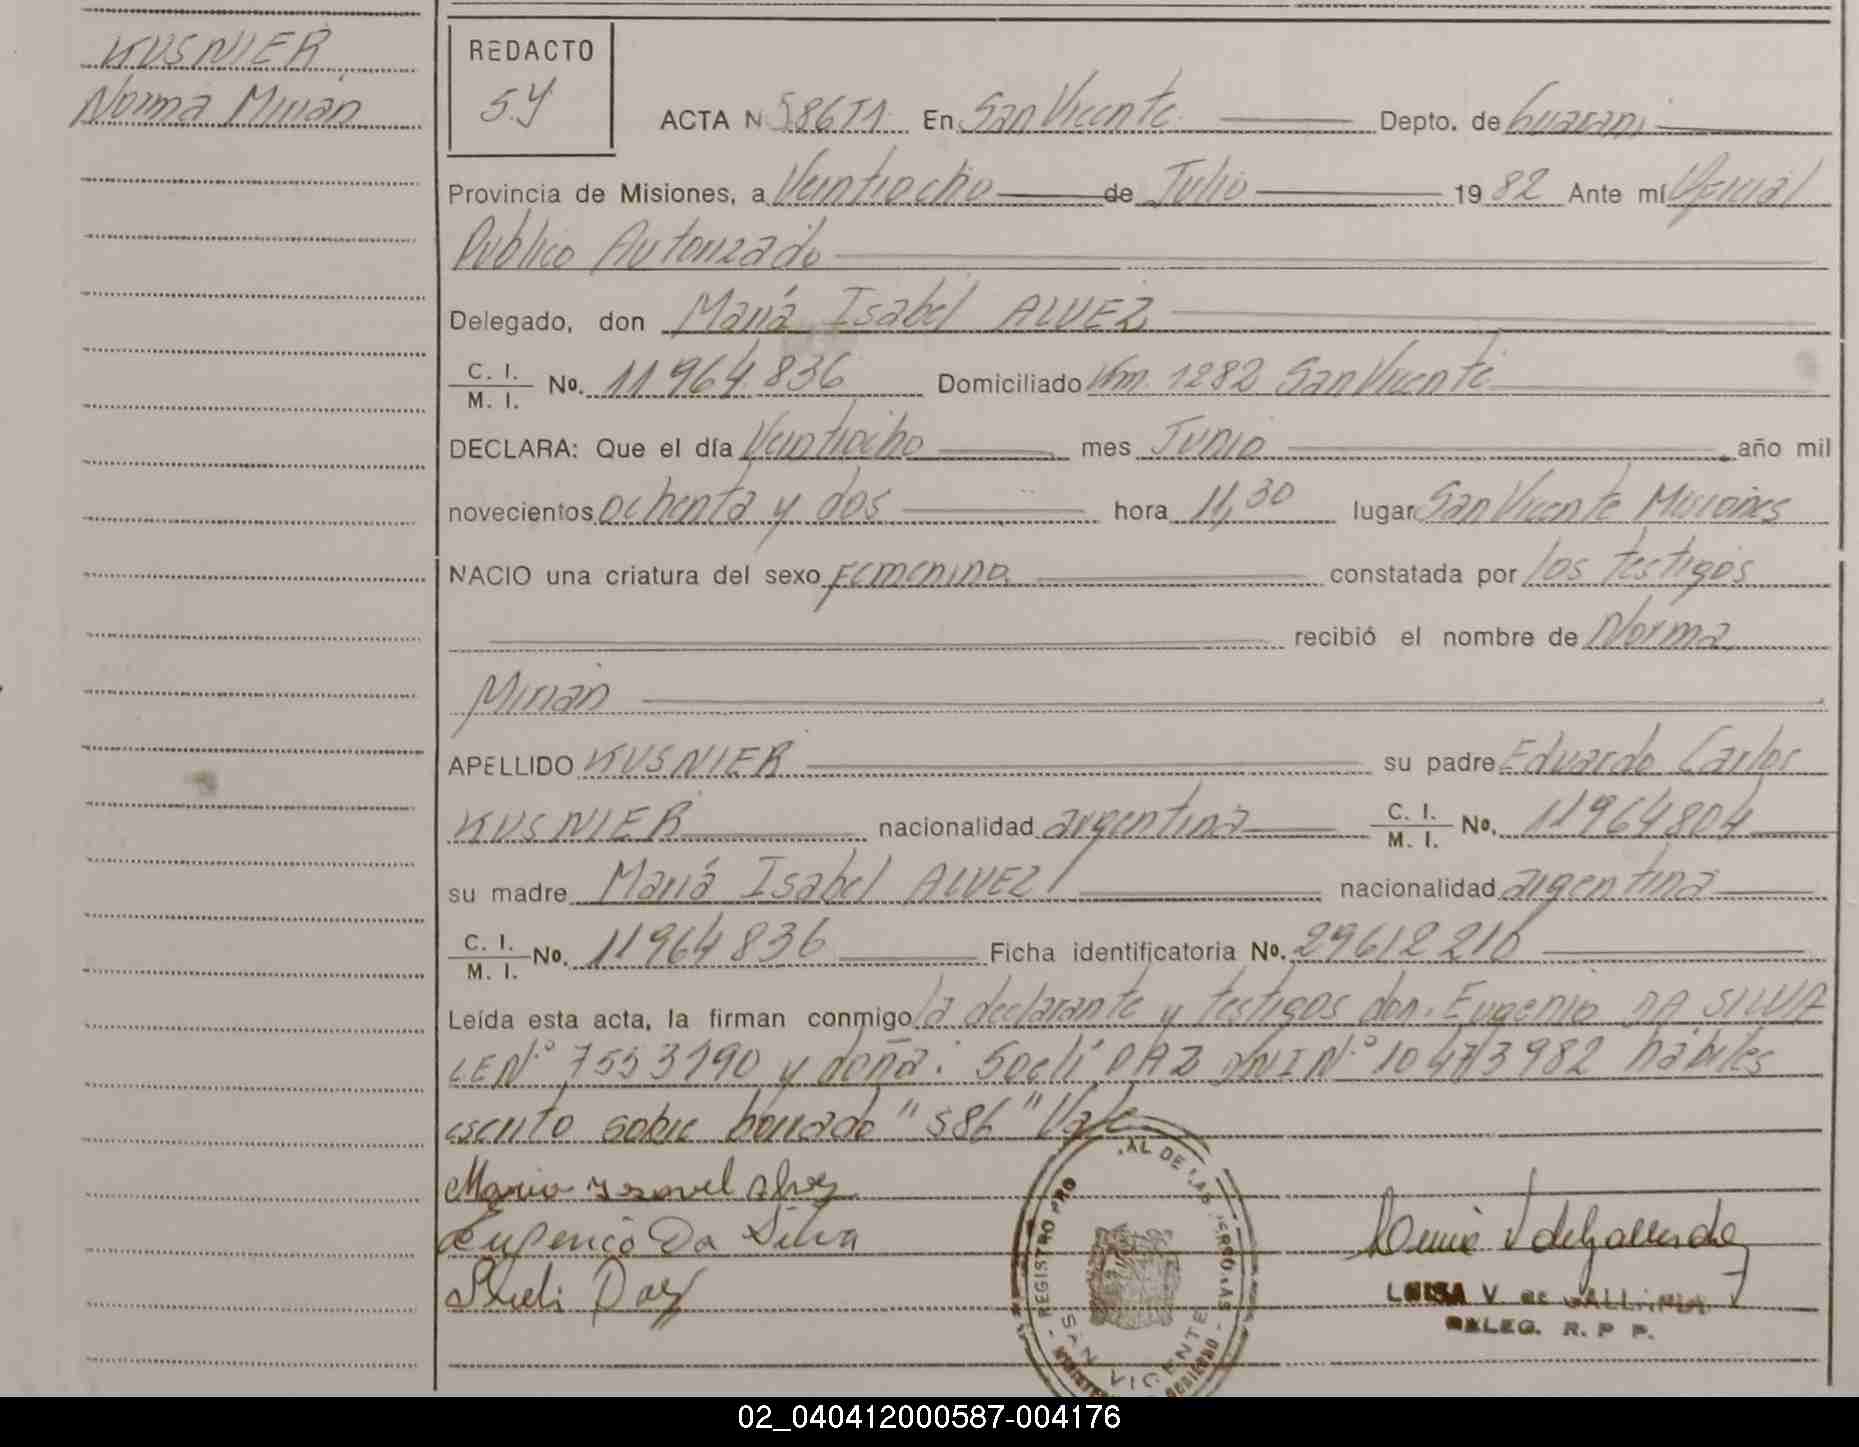 KUSNIER
Norma Mirian
REDACTO
S.Y
ACTA N 586T1 En San Vicente Depto. de Guarani
Provincia de Misiones, a Veintiocho de Julio 1982 Ante mí Oficial
Publico Autorizado
Delegado, don María Isabel ALVEZ
C. I. / M. I. No. 11964.836 Domiciliado Km. 1282 San Vicente
DECLARA: Que el día Veintiocho mes Junio año mil
novecientos ochenta y dos hora 11,30 lugar San Vicente Misiones
NACIO una criatura del sexo Femenino constatada por los testigos
recibió el nombre de Norma
Mirian
APELLIDO KUSNIER su padre Eduardo Carlos
KUSNIER nacionalidad argentina C. I. / M. I. No. 11964804
su madre María Isabel ALVEZ nacionalidad argentina
C. I. / M. I. No. 11964836 Ficha identificatoria No. 29612210
Leída esta acta, la firman conmigo la declarante y testigos don. Eugenio DA SILVA
LE Nº 7553190 y doña: Soeli DAZ DNI Nº 10473982 hábiles
escrito sobre borrado "586" Vale
Eugenio Da Silva
REGISTRO PRO AL DE LAS PERSONAS
SAN VICENTE
LUISA V de
DELEG. R. P P.
02_040412000587-004176